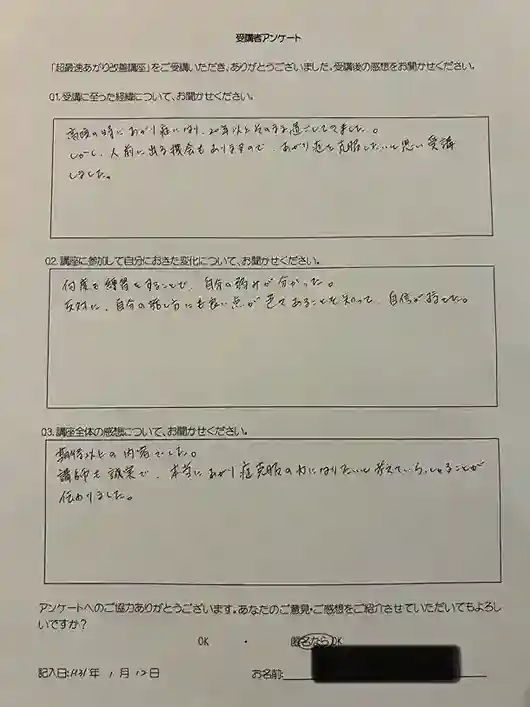 受講者アンケート
「超最速あがり改善講座」をご受講いただき、ありがとうございました。受講後の感想をお聞かせください。
Q1.受講に至った経緯について、お聞かせください。
高校の時にあがり症になり、20年以上そのまま過ごしてきました。
しかし、人前に出る機会もありますので、あがり症を克服したいと思い受講
しました。
Q2.講座に参加して自分におきた変化について、お聞かせください。
何度も練習をすることで、自分の弱みが分かった。
反対に、自分の話し方にも良い点が
あることを知って、自信が持てた。
Q3.講座全体の感想について、お聞かせください。
期待以上の内容でした。
講師も誠実で、本当にあがり症克服の力になりたいと考えていらっしゃることが
伝わりました。
アンケートへのご協力ありがとうございます。あなたのご意見・ご感想をご紹介させていただいてもよろし
いですか?
OK ・ 匿名ならOK
記入日:H31年 1月12日 お名前: